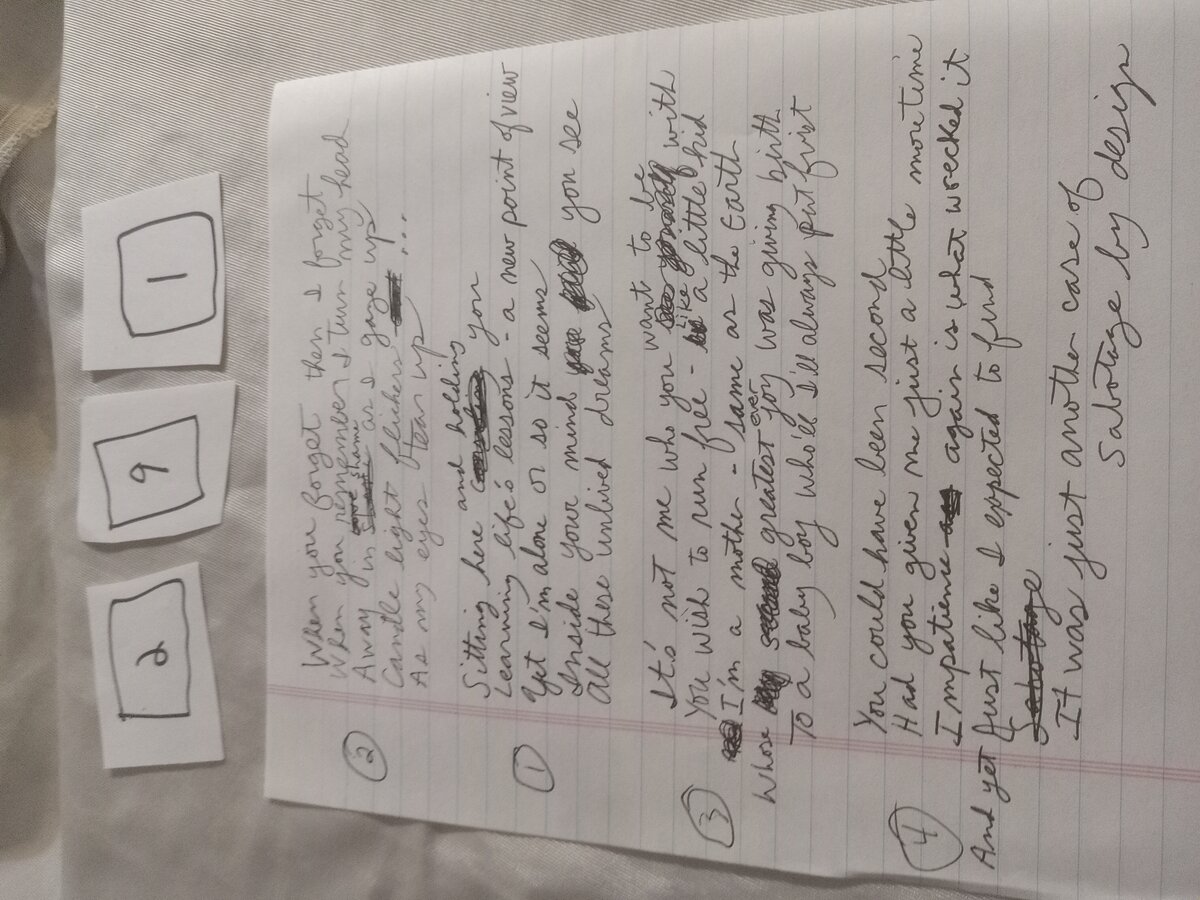 2
9
1
② When you forget then I forget
When you remember I turn my head
Away in shame as I gaze up
Candle light flickers ...
As my eyes tear up
Sitting here and holding you
① Learning life's lessons - a new point of view
Yet I'm alone or so it seems
Inside your mind you see
All these unlived dreams
It's not me who you want to be with
③ You wish to run free - like a little kid
I'm a mother - same as the Earth
Whose greatest ever joy was giving birth
To a baby boy who'll I'll always put first
You could have been second
④ Had you given me just a little more time
Impatience again is what wrecked it
And yet Just like I expected to find
Sabotage
It was just another case of
Sabotage by design